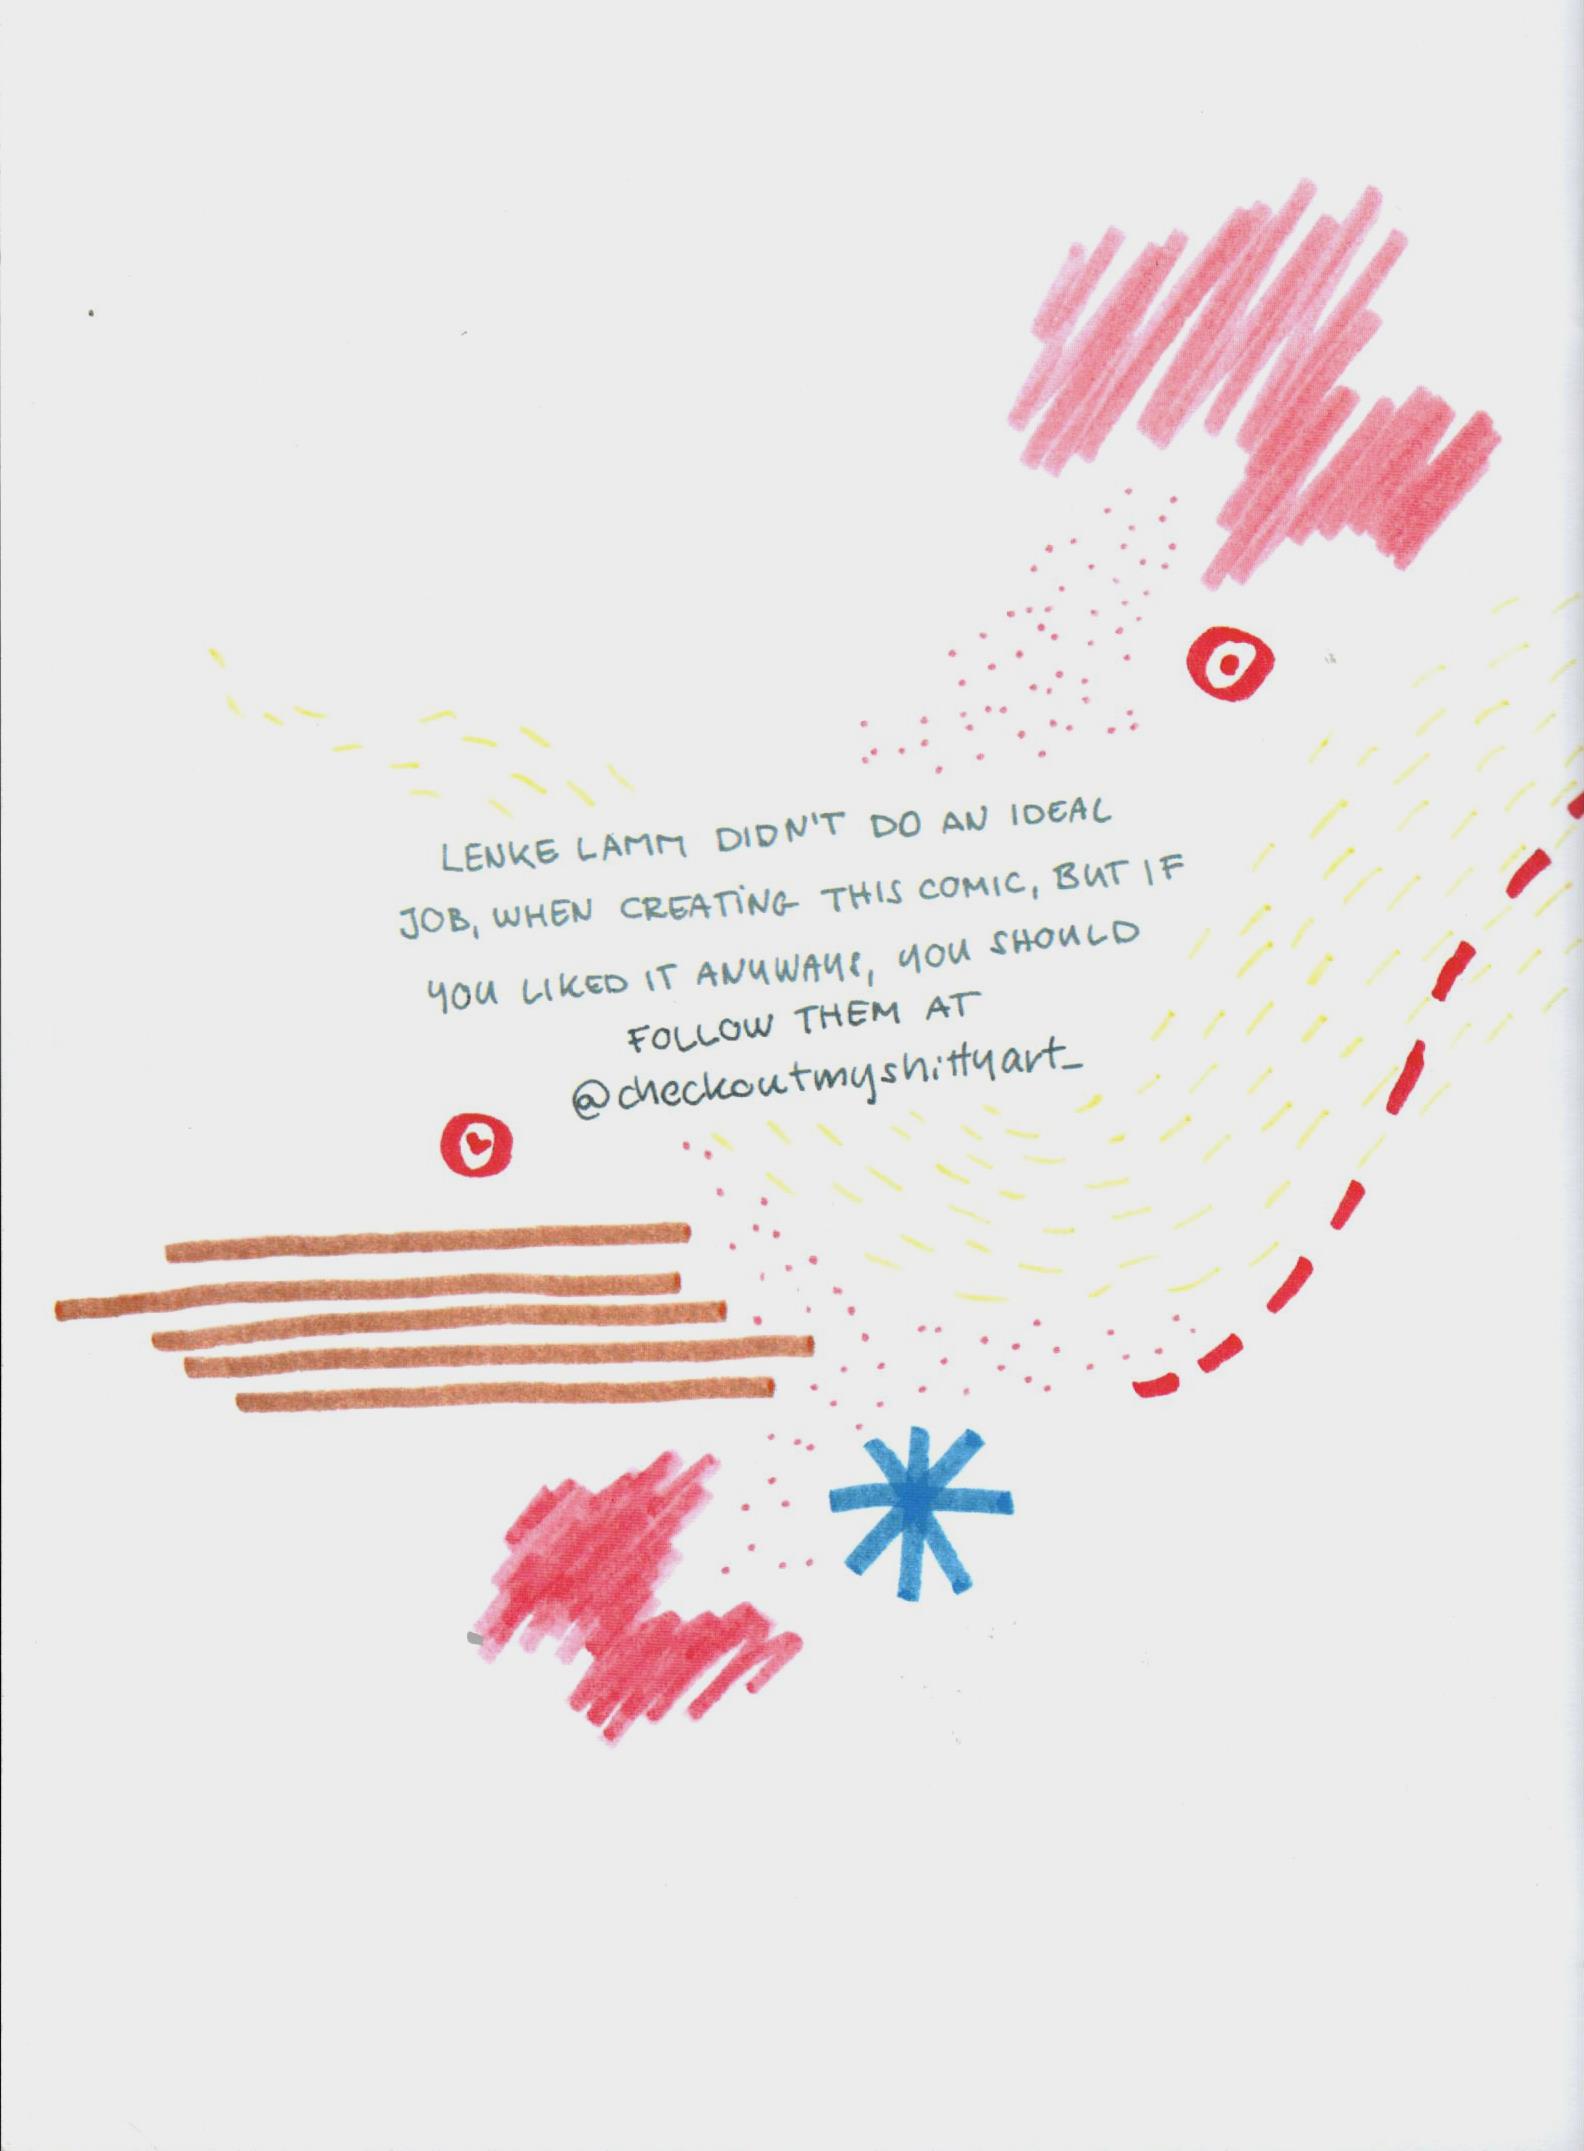 LENKE LAMM DIDN'T DO AN IDEAL
JOB, WHEN CREATING THIS COMIC, BUT IF
YOU LIKED IT ANYWAYS, YOU SHOULD
FOLLOW THEM AT
@checkoutmyshittyart_